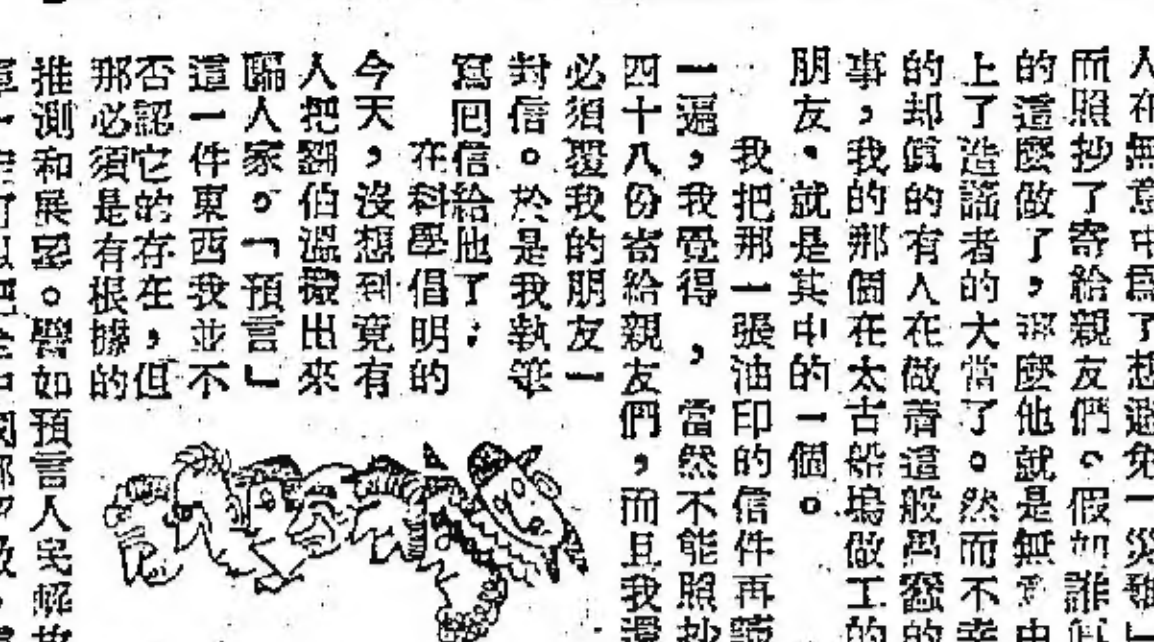 人在無意中爲了想避免一災難
而照抄了寄給親友們。假如誰
的這麽做了，那麽他就是無
上了造謠者的大當了。然而不幸
的却眞的有人在做着這般愚蠢的
事，我的那個在太古船塢做工的
朋友，就是其中的一個。
我把那一張油印的信件再讀
一遍，我覺得，當然不能照抄
四十八份寄給親友們，而且我還
必須覆我的朋友一
封信。於是我執筆
寫囘信給他了：
在科學倡明的
今天，沒想到竟有
人把劉伯溫搬出來
騙人家。「預言」
這一件東西我並不
否認它的存在，但
那必須是有根據的
推測和展望。譬如預言人民解放